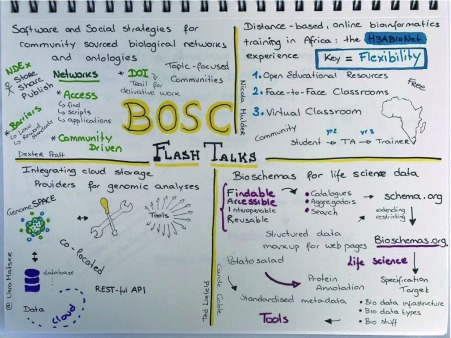 Software and Social strategies for
community sourced biological networks
and ontologies
NDEx
Store
Share
Publish
Networks
* Access
↳ find
↳ scripts
↳ applications
* DOI
Trail for
derivative work
Topic-focused
Communities
* Barriers
↳ Low
↳ Reward
standards
* Community
Driven
Dexter Pratt
Distance-based, online bioinformatics
training in Africa: the H3ABioNet
experience
Key = Flexibility
1. Open Educational Resources
2. Face-to-Face Classrooms
3. Virtual Classroom
Free
Community
yr2 yr3
student → TA → Trainer
Nicola Mulder
BOSC
FLASH TALKS
Integrating cloud storage
Providers for genomic analyses
GenomeSPACE
Tools
co-located
database
REST-ful API
Data
cloud
Ted Liefeld
@
Bioschemas for life science data
Findable
Accessible
Interoperable
Reusable
• Catalogues
• Aggregators
• Search
schema.org
extending
restricting
Structured data
markup for web pages
Bioschemas.org
Potato salad
Life science
Protein
Annotation
Specification
Target
Standardised metadata
• Bio data infrastructure
• Bio data types
• Bio stuff
Tools
Carole Goble